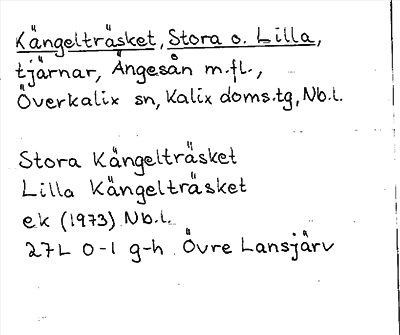 Kängelträsket, Stora o. Lilla,
tjärnar, Ängesån m.fl.,
Överkalix sn, Kalix doms.tg, Nb.l.
Stora Kängelträsket
Lilla Kängelträsket
ek (1973) Nb.l.
27L 0-1 g-h Övre Lansjärv